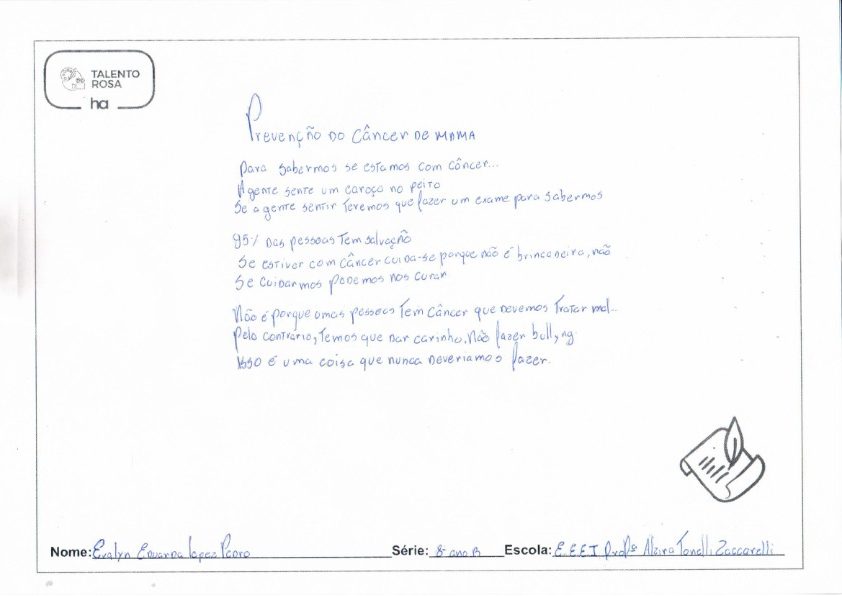 TALENTO
ROSA
ha
Prevenção do Câncer de mama
Para sabermos se estamos com câncer...
Agente sente um caroço no peito
Se agente sentir teremos que fazer um exame para sabermos
95% das pessoas tem salvação
Se estiver com câncer cuida-se porque não é brincadeira, não
Se cuidarmos podemos nos curar
Não é porque umas pessoas tem câncer que devemos tratar mal...
Pelo contrário, temos que dar carinho. Não fazer bullyng
Isso é uma coisa que nunca deveriamos fazer.
Nome: Evalyn Eduarda Lopes Pedro Série: 8º ano B Escola: E.E.E.I Profª Alzira Tonelli Zaccarelli